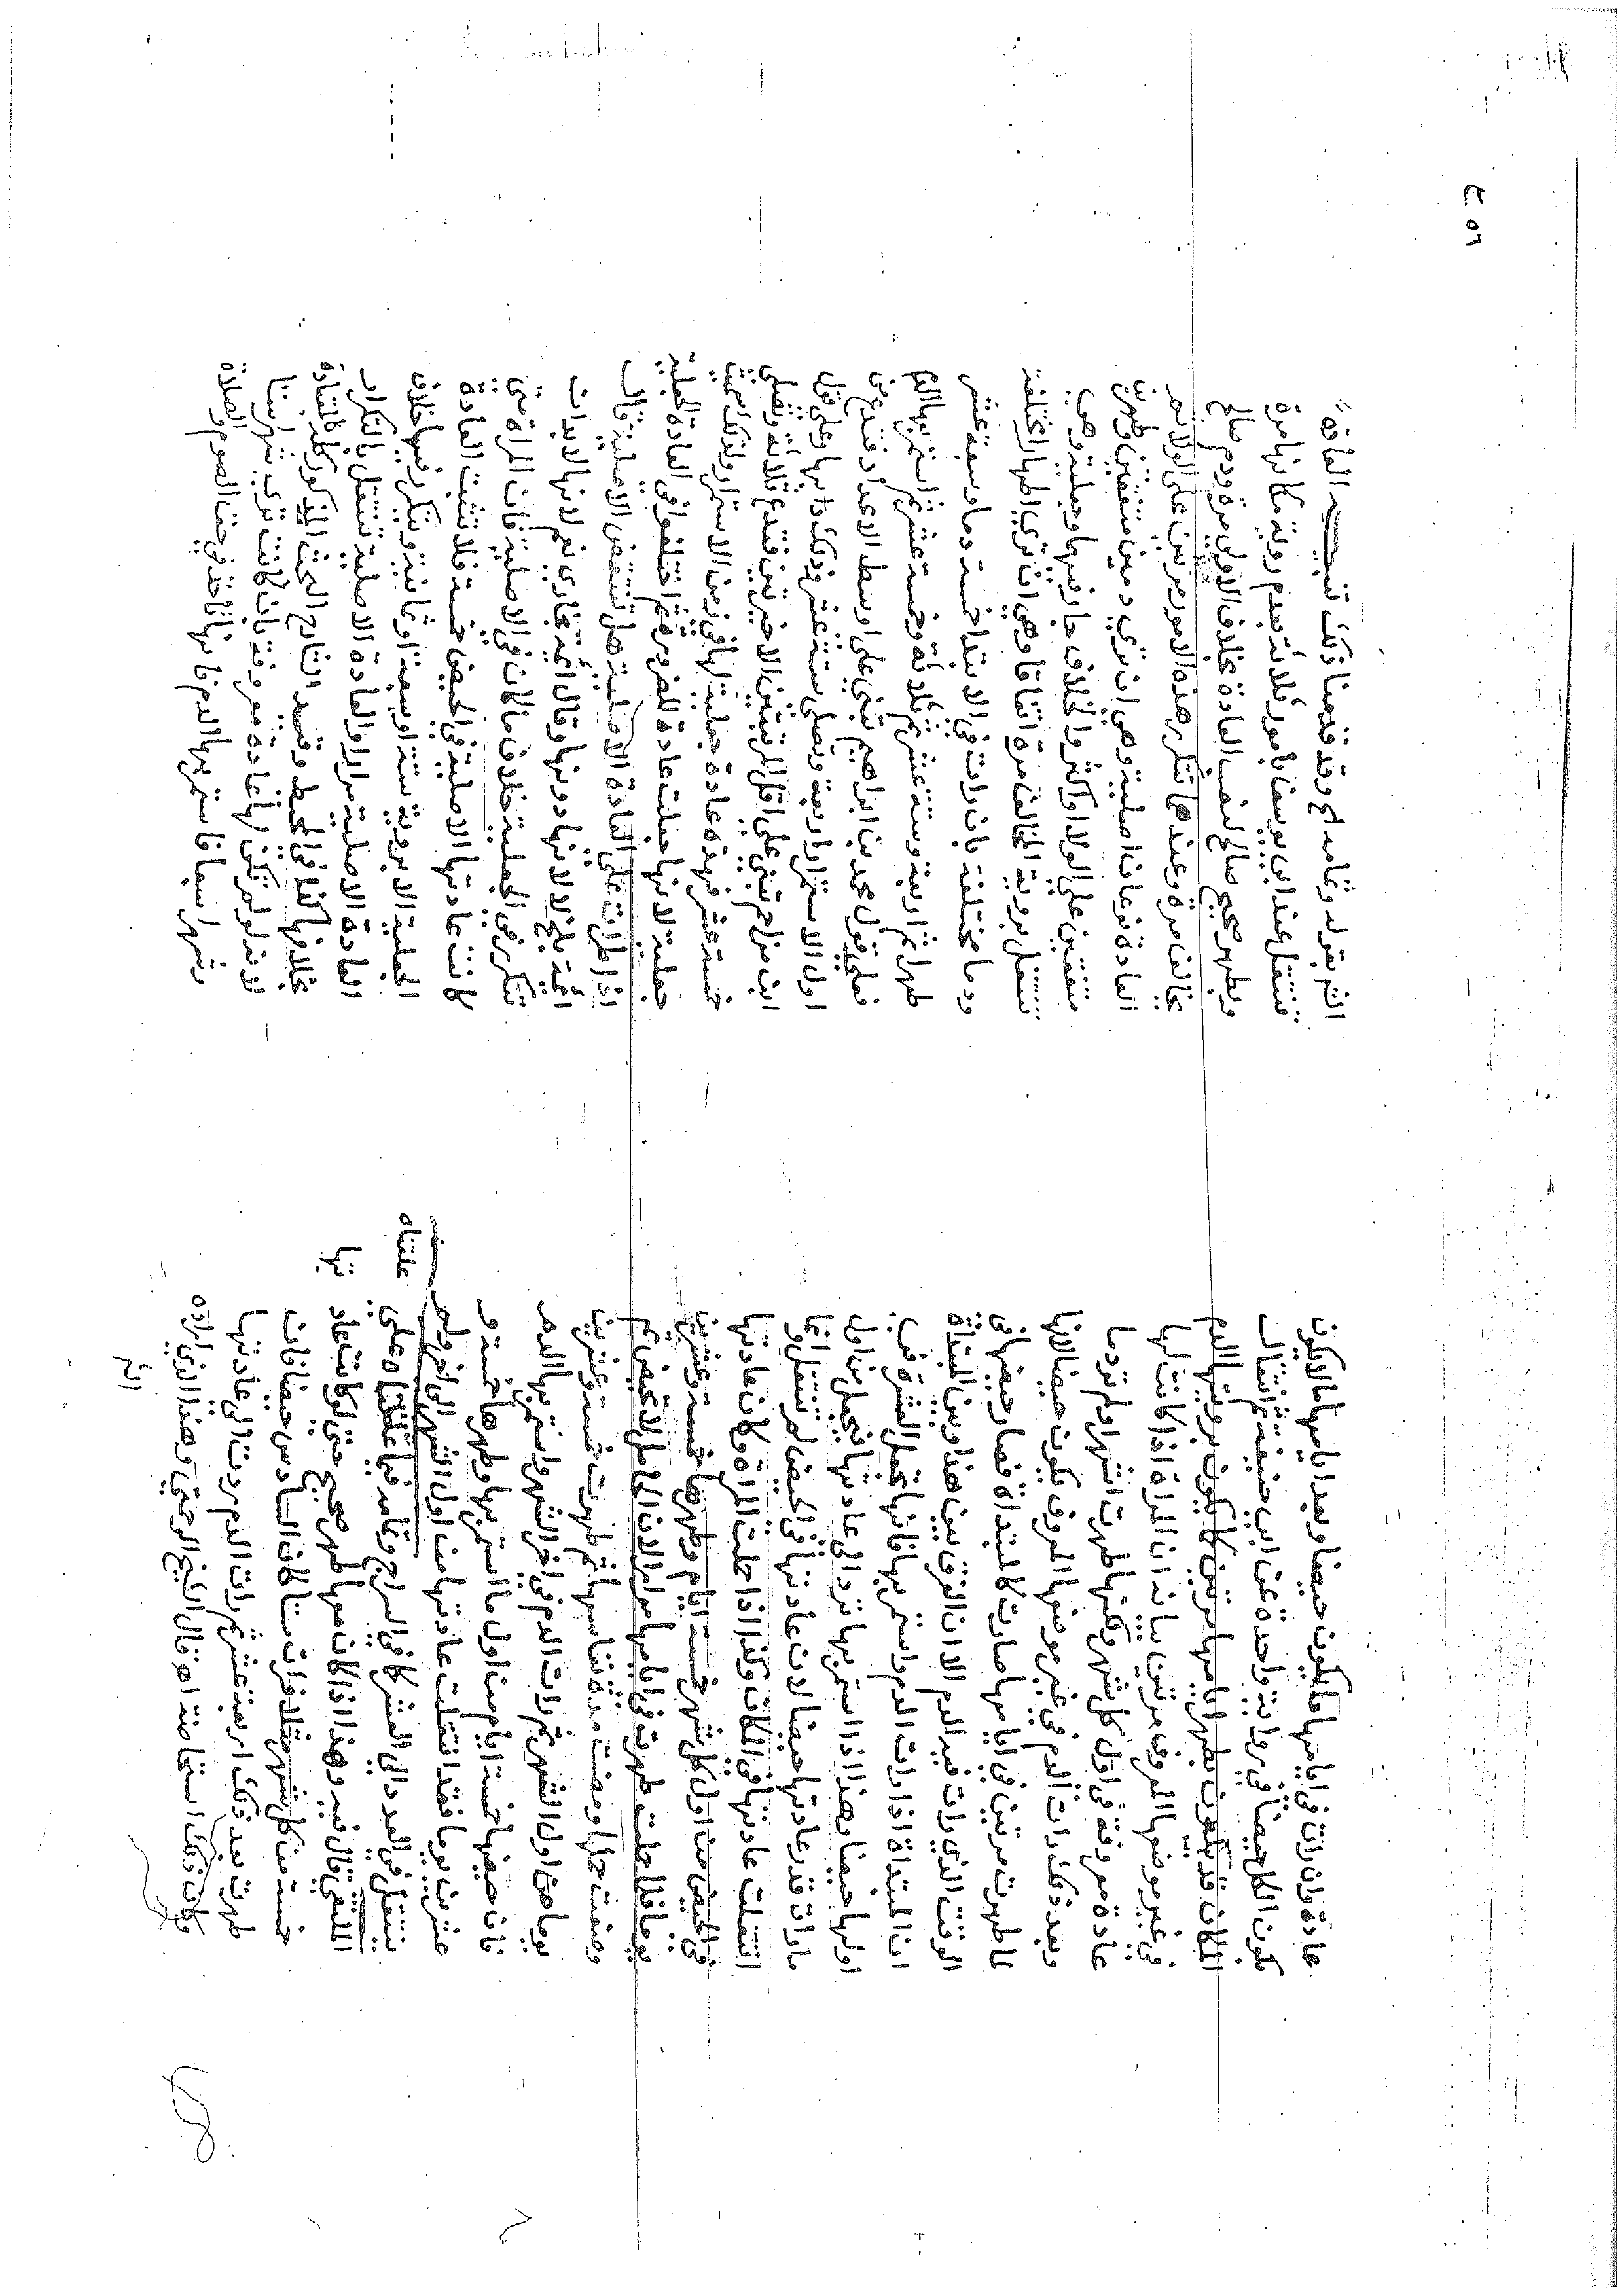 عادة وان رات في ايامها ما يكون حيضا وبعد ايامها ما لا يكون
يكون الكل حيضا في رواية واحدة عن ابي حنيفة ثم انتقال
المكان قد يكون بطهر ايامها مرتين كما يكون برويتها الدم
في غير موضعها المعروف مرتين بيانه ان المراة اذا كانت لها
عادة معروفة في اول كل شهر ولكنها طهرت اشهرا ولم تر دما
وبعد ذلك رات الدم في غير موضعها المعروف يكون حيضا لانها
لما طهرت مرتين في ايامها صارت كالمبتداة فصار حيضها في
الوقت الذي رات فيه الدم الا ان الفرق بين هذا وبين المبتداة
ان المبتداة اذا رات الدم واستمر بها فانها تجعل العشرة من
اولها حيضا وهذا اذا استمر بها ترد الى عادتها فيجعل من اول
ما رات قدر عادتها حيضا لان عادتها في الحيض لم تنتقل وانما
انتقلت عادتها في المكان وكذا اذا حبلت المراة وكان عادتها
في الحيض من اول كل شهر خمسة ايام وطهرها خمسة وعشرين
يوما فلما حبلت طهرت في ايامها مرارا لان الحامل لا تحيض ثم
وضعت حملها ومضت مدة نفاسها ثم طهرت خمسة وعشرين
يوما من اول الشهر ثم رات الدم في اخر الشهر واستمر بها الدم
فان حيضها خمسة ايام من اول ما استمر بها وطهرها خمسة و
عشرين يوما فقد انتقلت عادتها من اول الشهر الى اخره ولم
ينتقل في العدد الى العشر كما في السراج وتمامه فيما علقناه على
الملتقى قال فيه وهذا اذا كان معها طهر صحيح حتى لو كانت عاد تها
خمسة من كل شهر مثلا فرات ستا كان السادس حيضا فان
طهرت بعد ذلك اربعة عشر ثم رات الدم ردت الى عادتها
وكان ذلك استحاضة اهـ قال الشيخ الرحمتي وهذا الذي اراده
الشم
٥٦
الشم بقوله وتمامه الخ وقد قدمنا ذلك تنبيـه العادة
تنتقل عند ابي يوسف بامور ثلاثة بعدم روية مكانها مرة
وبطهر صحيح صالح لنصب العادة بخلاف الاولى مرة ودم صالح
مخالف مرة وعندهما بتكرر هذه الامور مرتين على الولا ثم
العادة نوعان اصلية وهي ان ترى دمين متفقين وطهرين
متفقين على الولا او اكثر والخلاف جار فيها وجعلية وهي
تنتقل بروية المخالف مرة اتفاقا وهي ان ترى اطهارا مختلفة
ودماء مختلفة بان رات في الابتدا خمسة دما وسبعة عشر
طهرا ثم اربعة وستة عشر ثم ثلاثة وخمسة عشر ثم استمر بها الدم
فعلى قول محمد بن ابراهيم تبنى على اوسط الاعداد فتدع من
اول الاستمرار اربعة وتصلي ستة عشر وذلك دابها وعلى قول
ابن مزاحم تبنى على اقل المرتين الاخيرتين فتدع ثلاثة وتصلي
خمسة عشر فهذه عادة جعلية لها في زمن الاستمرار ولذلك سميت
جعلية لانها جعلت عادة للضرورة ثم اختلفوا في العادة الجعلية
اذا طرات على العادة الاصلية هل تنتقض الاصلية قال
ائمة بلخ لا لانها دونها وقال ائمة بخارى نعم لانها لا بد ان
تتكرر في الجعلية خلاف ما كان في الاصلية فان المراة متى
كانت عادتها الاصلية في الحيض خمسة فلا تثبت العادة
الجعلية الا بروية ستة او سبعة او ثمانية ويتكرر فيها خلاف
العادة الاصلية مرارا والعادة الاصلية تنتقل بالتكرار
بخلافها كذا في المحيط وقيد الشارح البحث المذكور بالمعتادة
لانه لو لم تكن لها عادة معروفة بان كانت ترى شهرا ستا
وشهرا سبعا فاستمر بها الدم فانها تاخذ في حق الصوم والصلاة